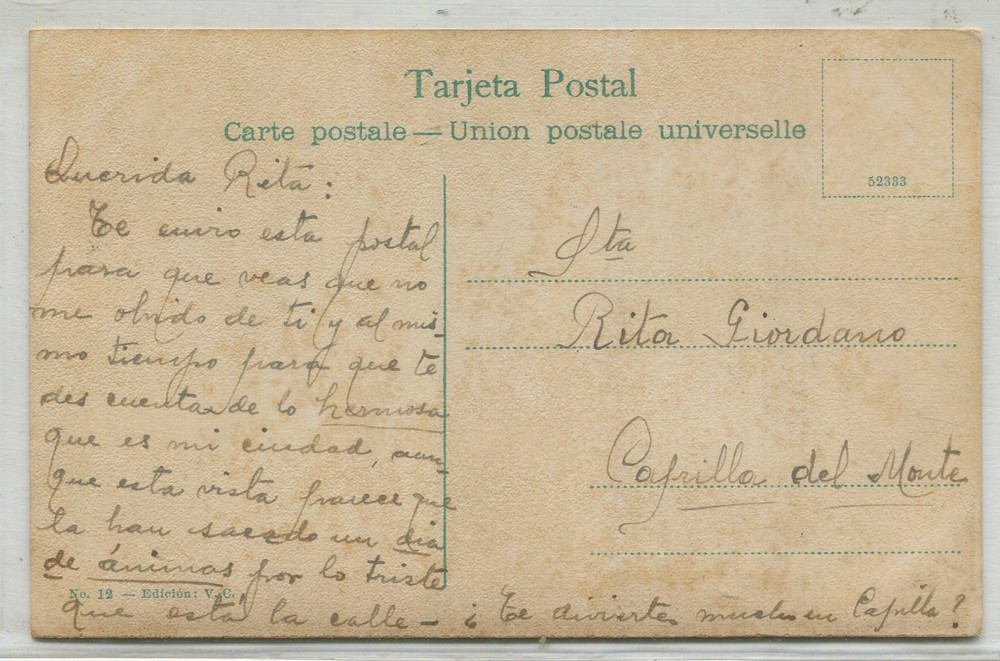 Tarjeta Postal
Carte postale — Union postale universelle
52333
Querida Rita:
Te envio esta postal
para que veas que no
me olvido de ti y al mis-
mo tiempo para que te
des cuenta de lo hermosa
que es mi ciudad, aun-
que esta vista parece que
la han sacado un dia
de ánimas por lo triste
que está la calle — ¿Te diviertes mucho en Capilla?
No. 12 — Edición: V. C.
Sta
Rita Giordano
Capilla del Monte